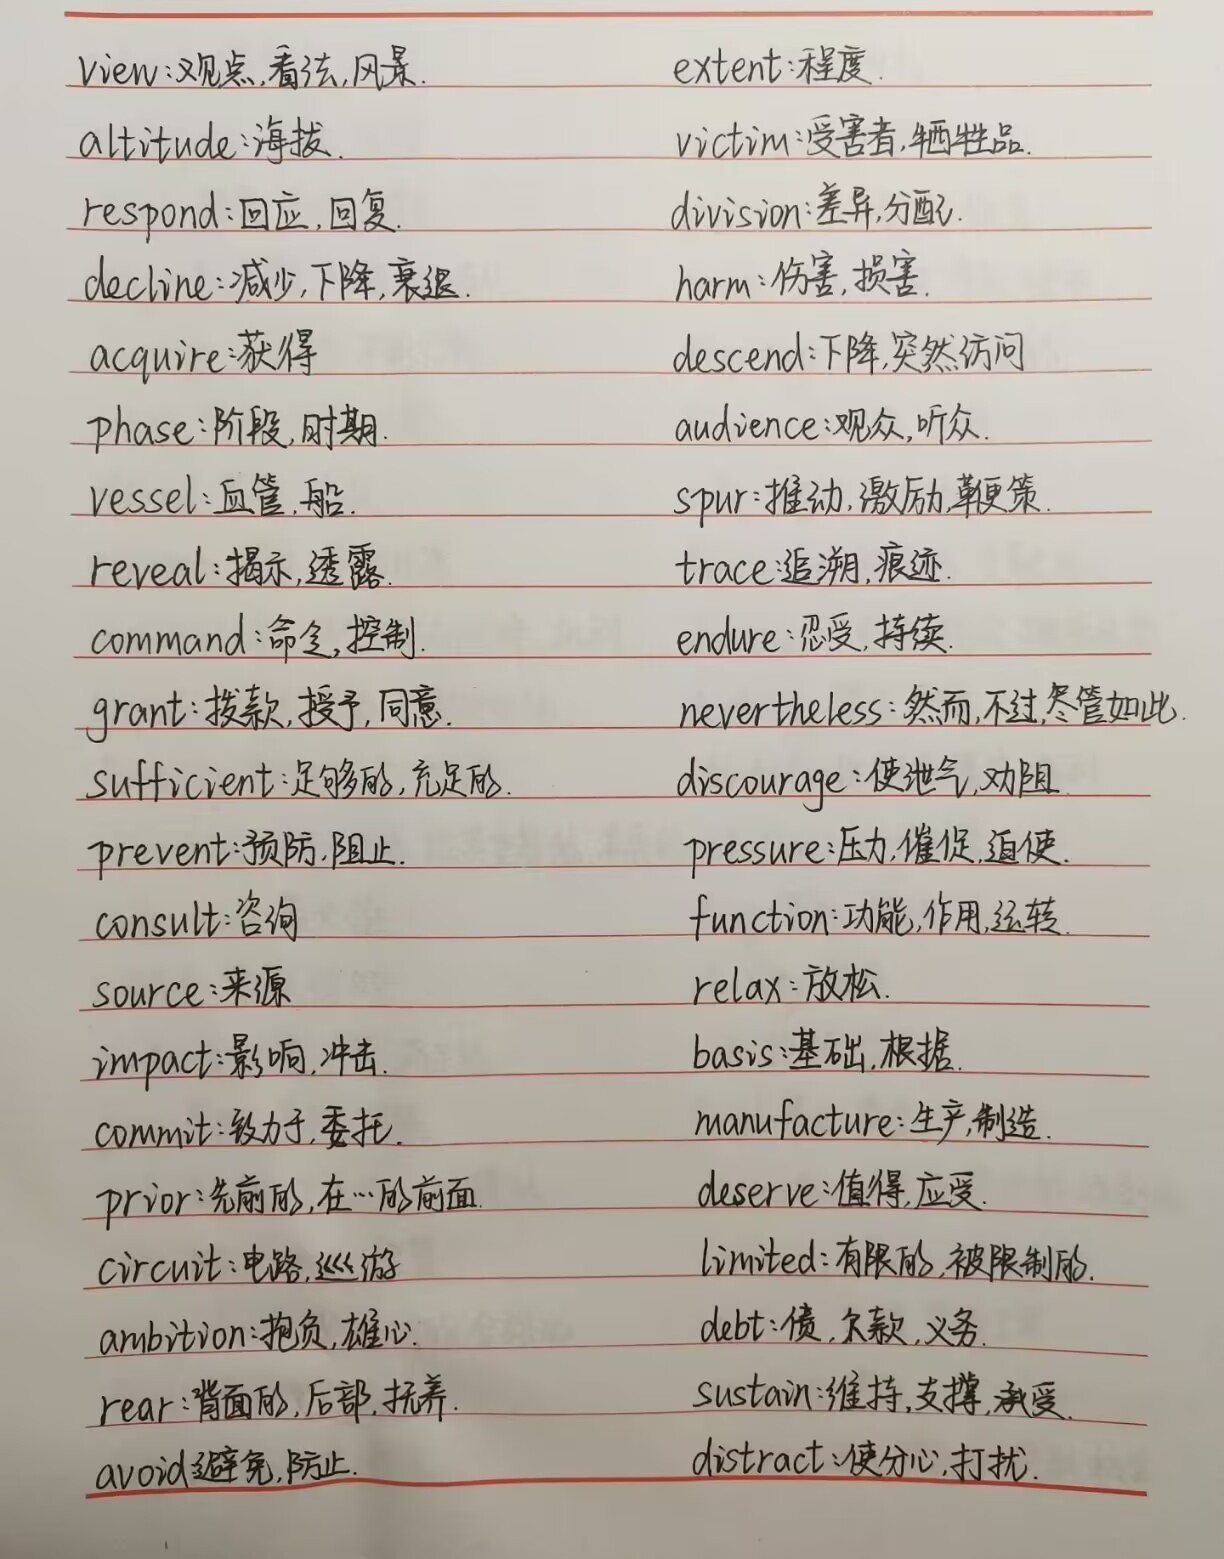 view:观点,看法,风景.
altitude:海拔.
respond:回应,回复.
decline:减少,下降,衰退.
acquire:获得
phase:阶段,时期.
vessel:血管,船.
reveal:揭示,透露.
command:命令,控制.
grant:拨款,授予,同意.
sufficient:足够的,充足的.
prevent:预防,阻止.
consult:咨询
source:来源
impact:影响,冲击.
commit:致力于,委托.
prior:先前的,在…的前面.
circuit:电路,巡游
ambition:抱负,雄心.
rear:背面的,后部,抚养.
avoid避免,防止.
extent:程度.
victim:受害者,牺牲品.
division:差异,分配.
harm:伤害,损害.
descend:下降,突然访问
audience:观众,听众.
spur:推动,激励,鞭策.
trace:追溯,痕迹.
endure:忍受,持续.
nevertheless:然而,不过,尽管如此.
discourage:使泄气,劝阻.
pressure:压力,催促,迫使.
function:功能,作用,运转.
relax:放松.
basis:基础,根据.
manufacture:生产,制造.
deserve:值得,应受.
limited:有限的,被限制的.
debt:债,欠款,义务.
sustain:维持,支撑,承受.
distract:使分心,打扰.